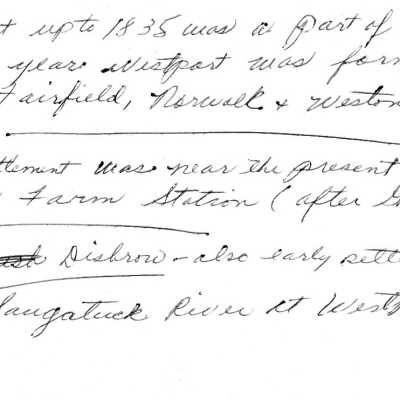 t up to 1835 was a part of
year Westport was for
Fairfield, Norwalk & Weston
ttlement was near the present
Farm Station (after
Disbrow - also early sett
augatuck River at West